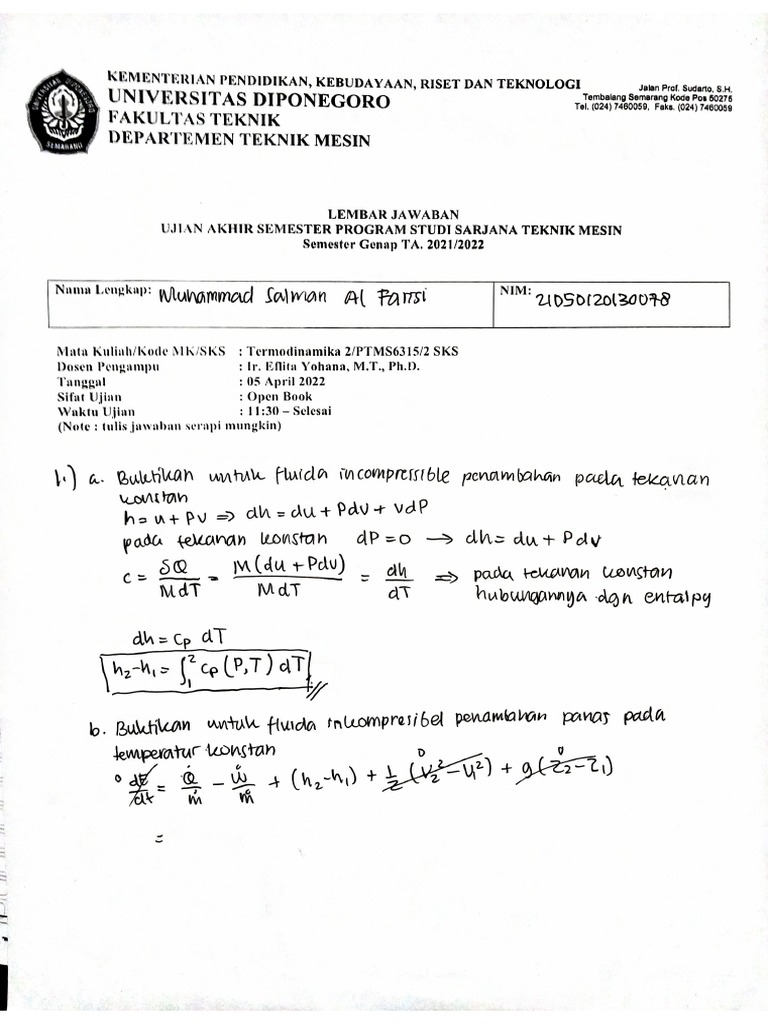 KEMENTERIAN PENDIDIKAN, KEBUDAYAAN, RISET DAN TEKNOLOGI
UNIVERSITAS DIPONEGORO
FAKULTAS TEKNIK
DEPARTEMEN TEKNIK MESIN
Jalan Prof. Sudarto, S.H.
Tembalang Semarang Kode Pos 50275
Tel. (024) 7460059, Faks. (024) 7460059
UNIVERSITAS DIPONEGORO
SEMARANG
LEMBAR JAWABAN
UJIAN AKHIR SEMESTER PROGRAM STUDI SARJANA TEKNIK MESIN
Semester Genap TA. 2021/2022
Nama Lengkap: Muhammad Salman Al Farisi NIM: 21050120130078
Mata Kuliah/Kode MK/SKS : Termodinamika 2/PTMS6315/2 SKS
Dosen Pengampu : Ir. Eflita Yohana, M.T., Ph.D.
Tanggal : 05 April 2022
Sifat Ujian : Open Book
Waktu Ujian : 11:30 – Selesai
(Note : tulis jawaban serapi mungkin)
1.) a. Buktikan untuk fluida incompressible penambahan pada tekanan
konstan
h = u + Pv ⇒ dh = du + Pdv + vdP
pada tekanan konstan dP = 0 → dh = du + Pdv
c = δQ/MdT = M(du + Pdv)/MdT = dh/dT ⇒ pada tekanan konstan
hubungannya dgn entalpy
dh = cp dT
h2-h1 = ∫₁² cp (P,T) dT //
b. Buktikan untuk fluida inkompresibel penambahan panas pada
temperatur konstan
0 dE/dt = Q̇/ṁ - Ẇ/ṁ + (h2-h1) + 1/2 (V2² - V1²) 0 + g(Z2 - Z1) 0
=